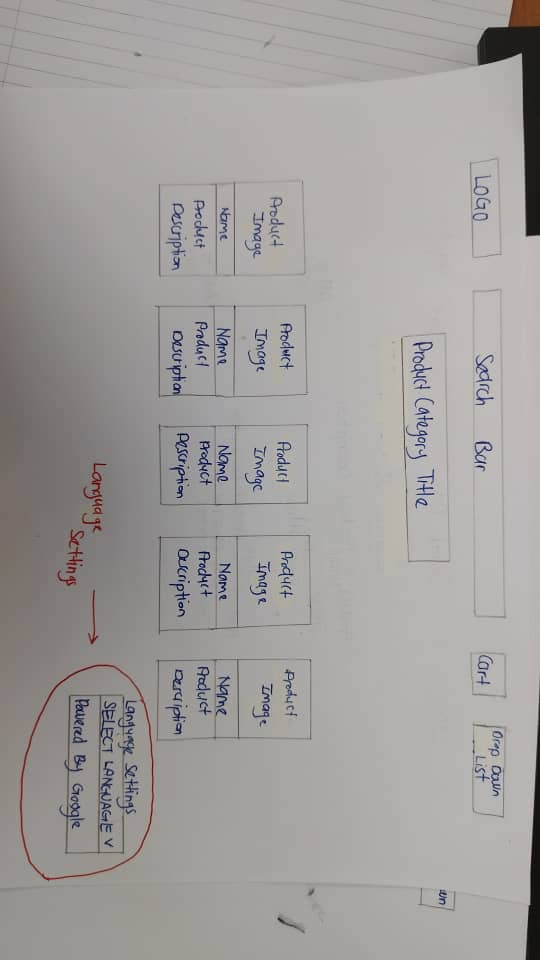 LOGO
Search Bar
Cart
Drop Down
List
Product Category Title
Product
Image
Name
Product
Description
Product
Image
Name
Product
Description
Product
Image
Name
Product
Description
Product
Image
Name
Product
Description
Product
Image
Name
Product
Description
Language
Settings
Language Settings
SELECT LANGUAGE V
Powered By Google